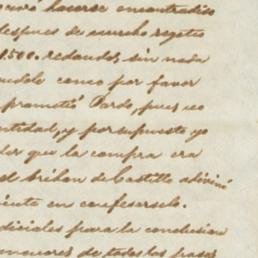 curé hacerse encontradizo
despues de mucho regateo
1.500. redondos, sin nada
como por favor
prometió Pardo, pues no
entidad, y por supuesto yo
der que la compra era
de Castillo adivinó
en confesarselo.
diciales para la conclusion
de todos los pasos